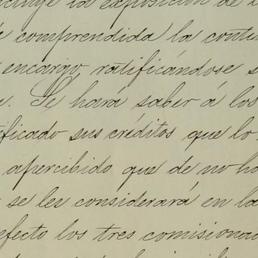 la exposición de
comprendida la conte
encargo, ratificándose s
a. Se hará saber á los
ificado sus créditos que lo
apercibido que de no ha
se les considerará en la
efecto los tres comisiona